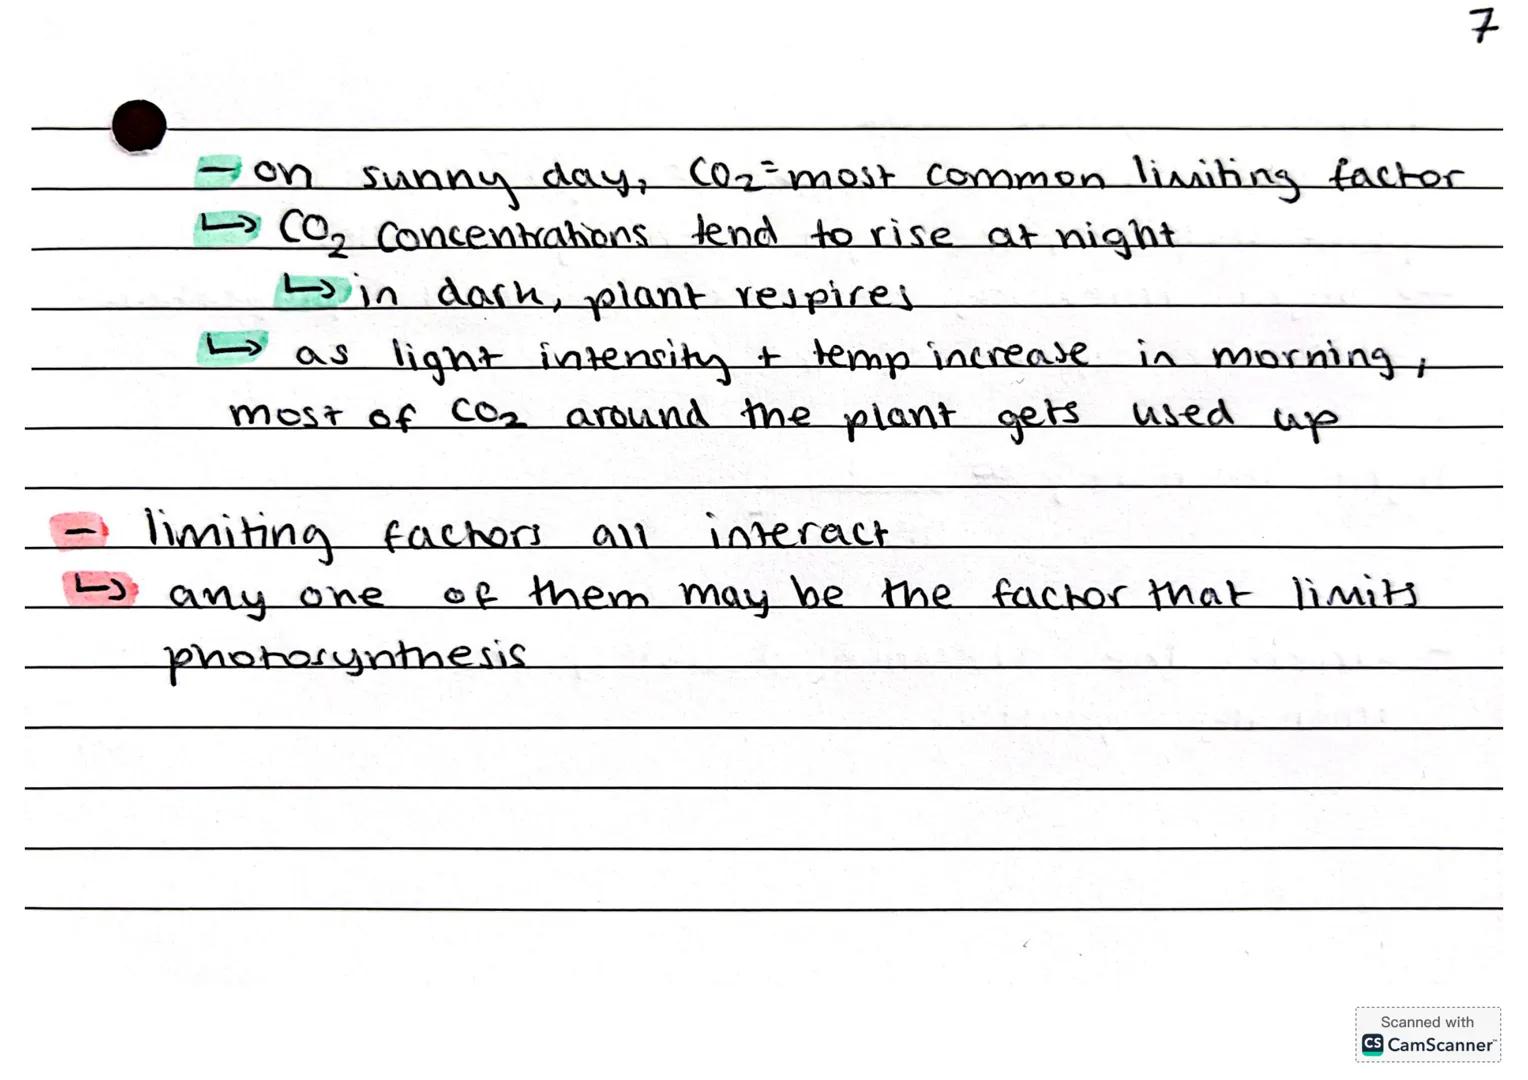 7
- on sunny day, CO₂ = most common limiting factor
↳ CO₂ concentrations tend to rise at night
↳ in dark, plant respires
↳ as light intensity + temp increase in morning,
most of CO₂ around the plant gets used up
- limiting factors all interact
↳ any one of them may be the factor that limits
photosynthesis
Scanned with
CS CamScanner